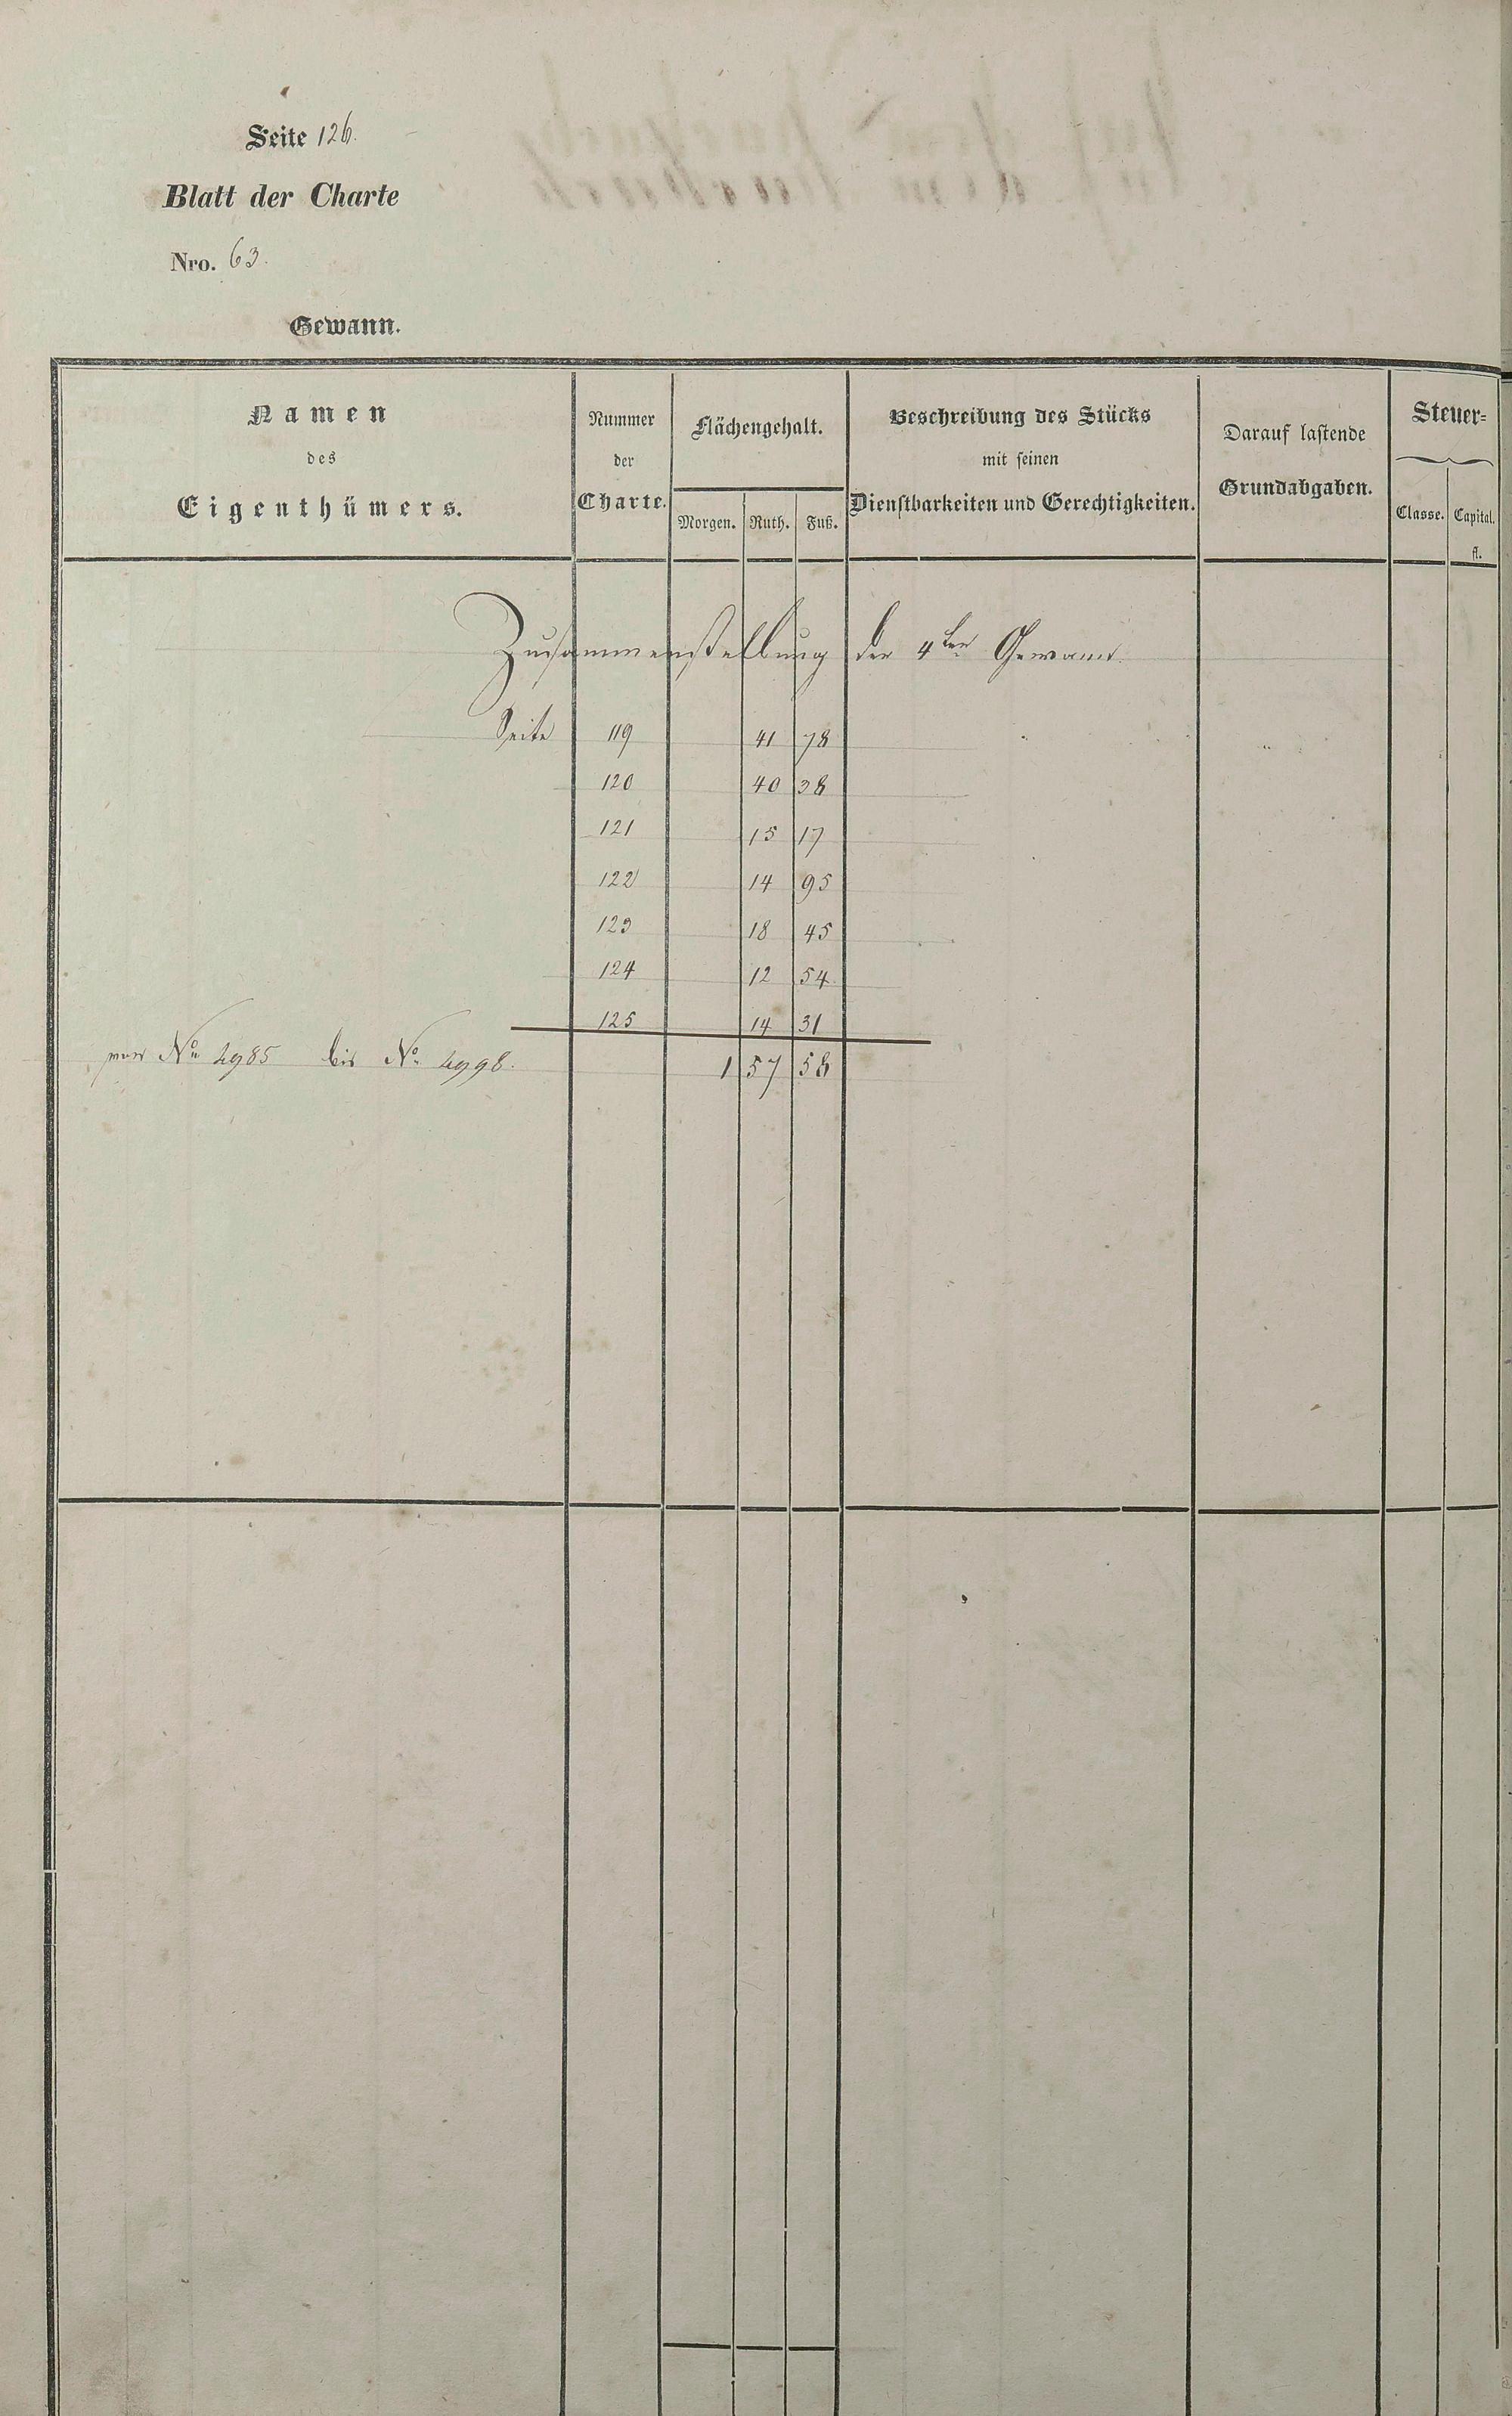 Seite 126.
Blatt der Charte
Nro. 63.
Gewann.
Namen des Eigenthümers.
Nummer der Charte.
Flächengehalt.
Morgen. Ruth. Fuß.
Beschreibung des Stücks mit seinen Dienstbarkeiten und Gerechtigkeiten.
Darauf lastende Grundabgaben.
Steuer=
Classe. Capital. fl.
Zusammenstellung der 4ten Gewann.
Seite 119 41 78
120 40 38
121 15 17
122 14 95
123 18 45
124 12 54
125 14 31
von No 4985 bis No 4998. 1 57 58